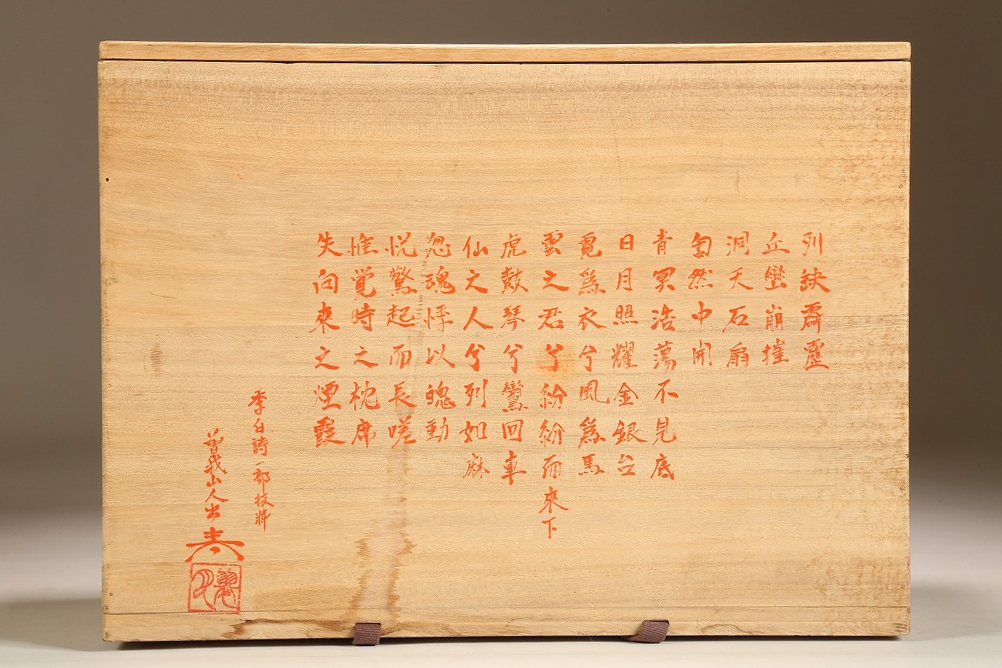 列缺霹靂
丘巒崩摧
洞天石扇
匐然中開
青冥浩蕩不見底
日月照耀金銀台
霓為衣兮風為馬
雲之君兮紛紛而來下
虎鼓琴兮鸞回車
仙之人兮列如麻
忽魂悸以魄動
怳驚起而長嗟
惟覚時之枕席
失向來之煙霞
李白詩一部抜粋
曽我山人